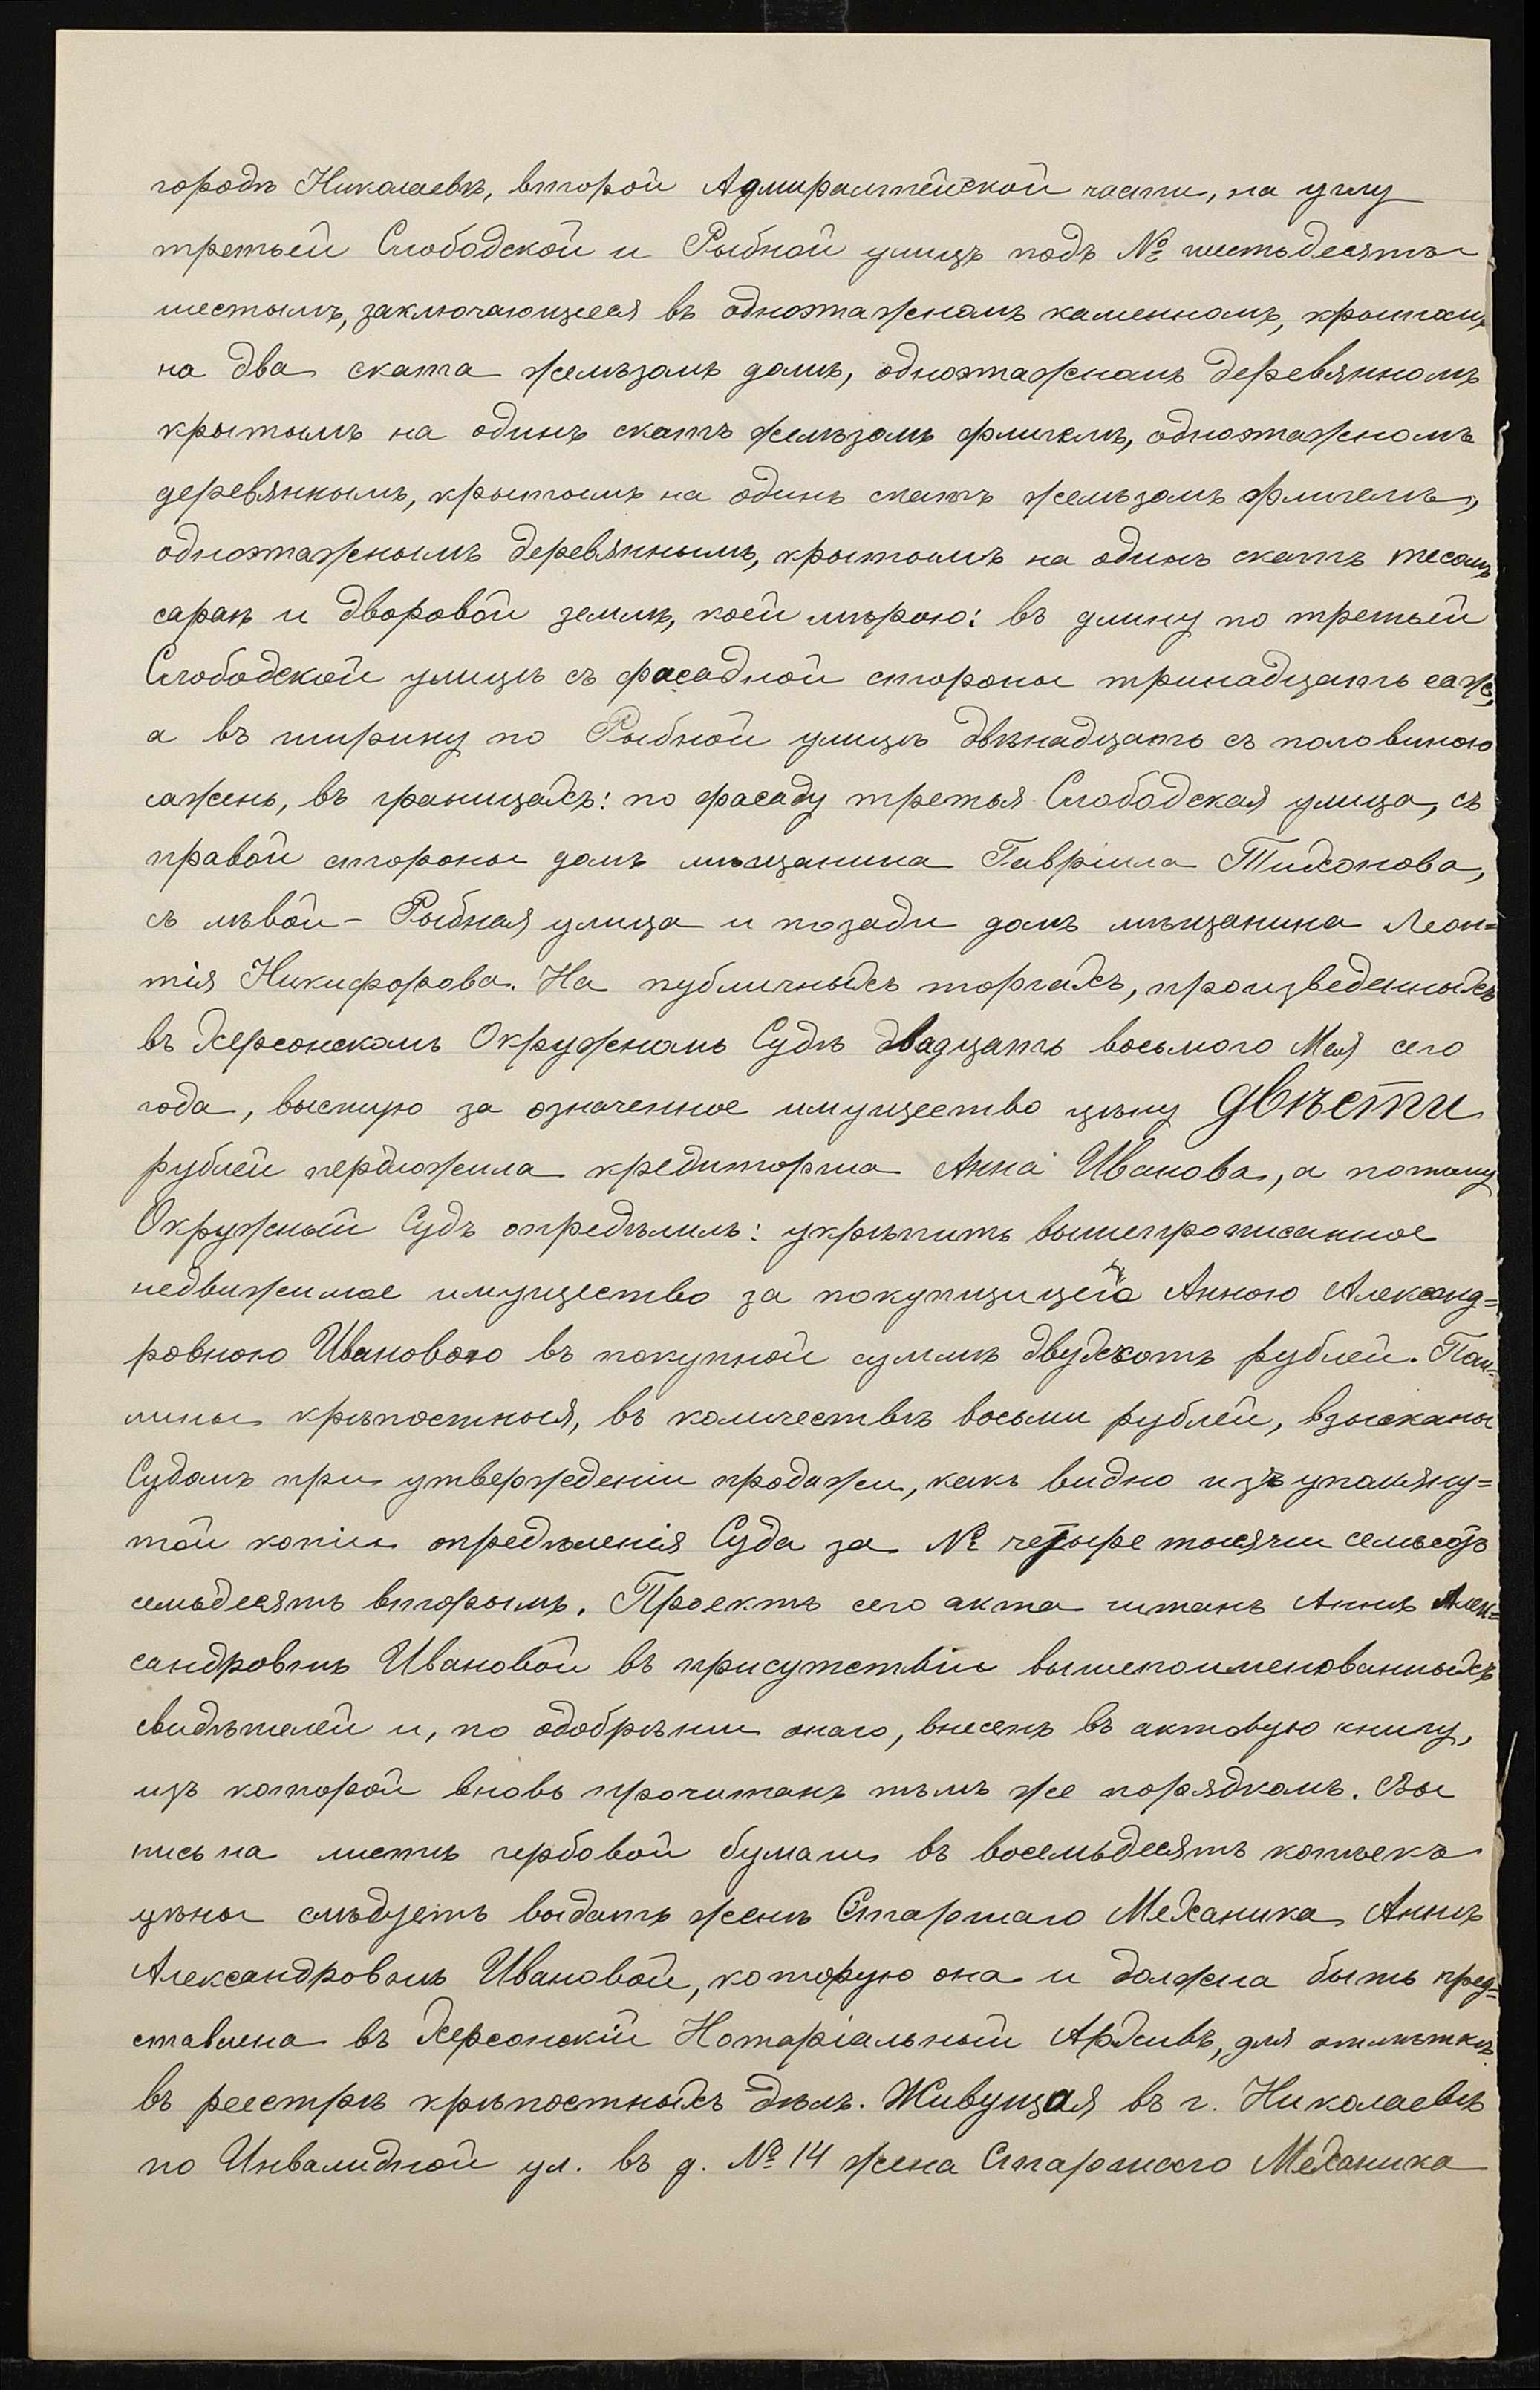 городѣ Николаевѣ, второй Адмиралтейской части, на углу
третьей Слободской и Рыбной улицъ подъ № шестьдесятъ
шестымъ, заключающееся въ одноэтажномъ каменномъ, крытомъ
на два ската желѣзомъ домѣ, одноэтажномъ деревянномъ
крытымъ на одинъ скатъ желѣзомъ флигелѣ, одноэтажномъ
деревяннымъ, крытымъ на одинъ скатъ желѣзомъ флигелѣ,
одноэтажнымъ деревяннымъ, крытымъ на одинъ скатъ тесомъ
сараѣ и дворовой землѣ, коей мѣрою: въ длину по третьей
Слободской улицѣ съ фасадной стороны тринадцать саж,
а въ ширину по Рыбной улицѣ двѣнадцать съ половиною
сажень, въ границахъ: по фасаду третья Слободская улица, съ
правой стороны домъ мѣщанина Гавріила Тихонова,
съ лѣвой - Рыбная улица и позади домъ мѣщанина Леон=
тія Никифорова. На публичныхъ торгахъ, произведенныхъ
въ Херсонскомъ Окружномъ Судѣ двадцать восьмого Мая сего
года, высшую за означенное имущество цѣну двѣсти
рублей предложила кредиторша Анна Иванова, а потому
Окружный Судъ опредѣлилъ: укрѣпить вышепрописанное
недвижимое имущество за покупщицею Анною Александ=
ровною Ивановою въ покупной суммѣ двухсотъ рублей. Пош=
лины крѣпостныя, въ количествѣ восьми рублей, взысканы
Судомъ при утвержденіи продажи, какъ видно изъ упомяну=
той копіи опредѣленія Суда за № четыре тысячи семьсотъ
семьдесятъ вторымъ. Проектъ сего акта читанъ Аннѣ Алек=
сандровнѣ Ивановой въ присутствіи вышепоименованныхъ
свидѣтелей и, по одобрѣнии онаго, внесенъ въ актовую книгу,
изъ которой вновь прочитанъ тѣмъ же порядкомъ. Вы
пись на листѣ гербовой бумаги въ восемьдесятъ копѣекъ
цѣны слѣдуетъ выдать женѣ Старшаго Механика Аннѣ
Александровнѣ Ивановой, которую она и должна быть пред=
ставлена въ Херсонскій Нотаріальный Архивъ, для отмѣтки
въ реестрѣ крѣпостныхъ дѣлъ. Живущая въ г. Николаевѣ
по Инвалидной ул. въ д. № 14 жена Старшаго Механика